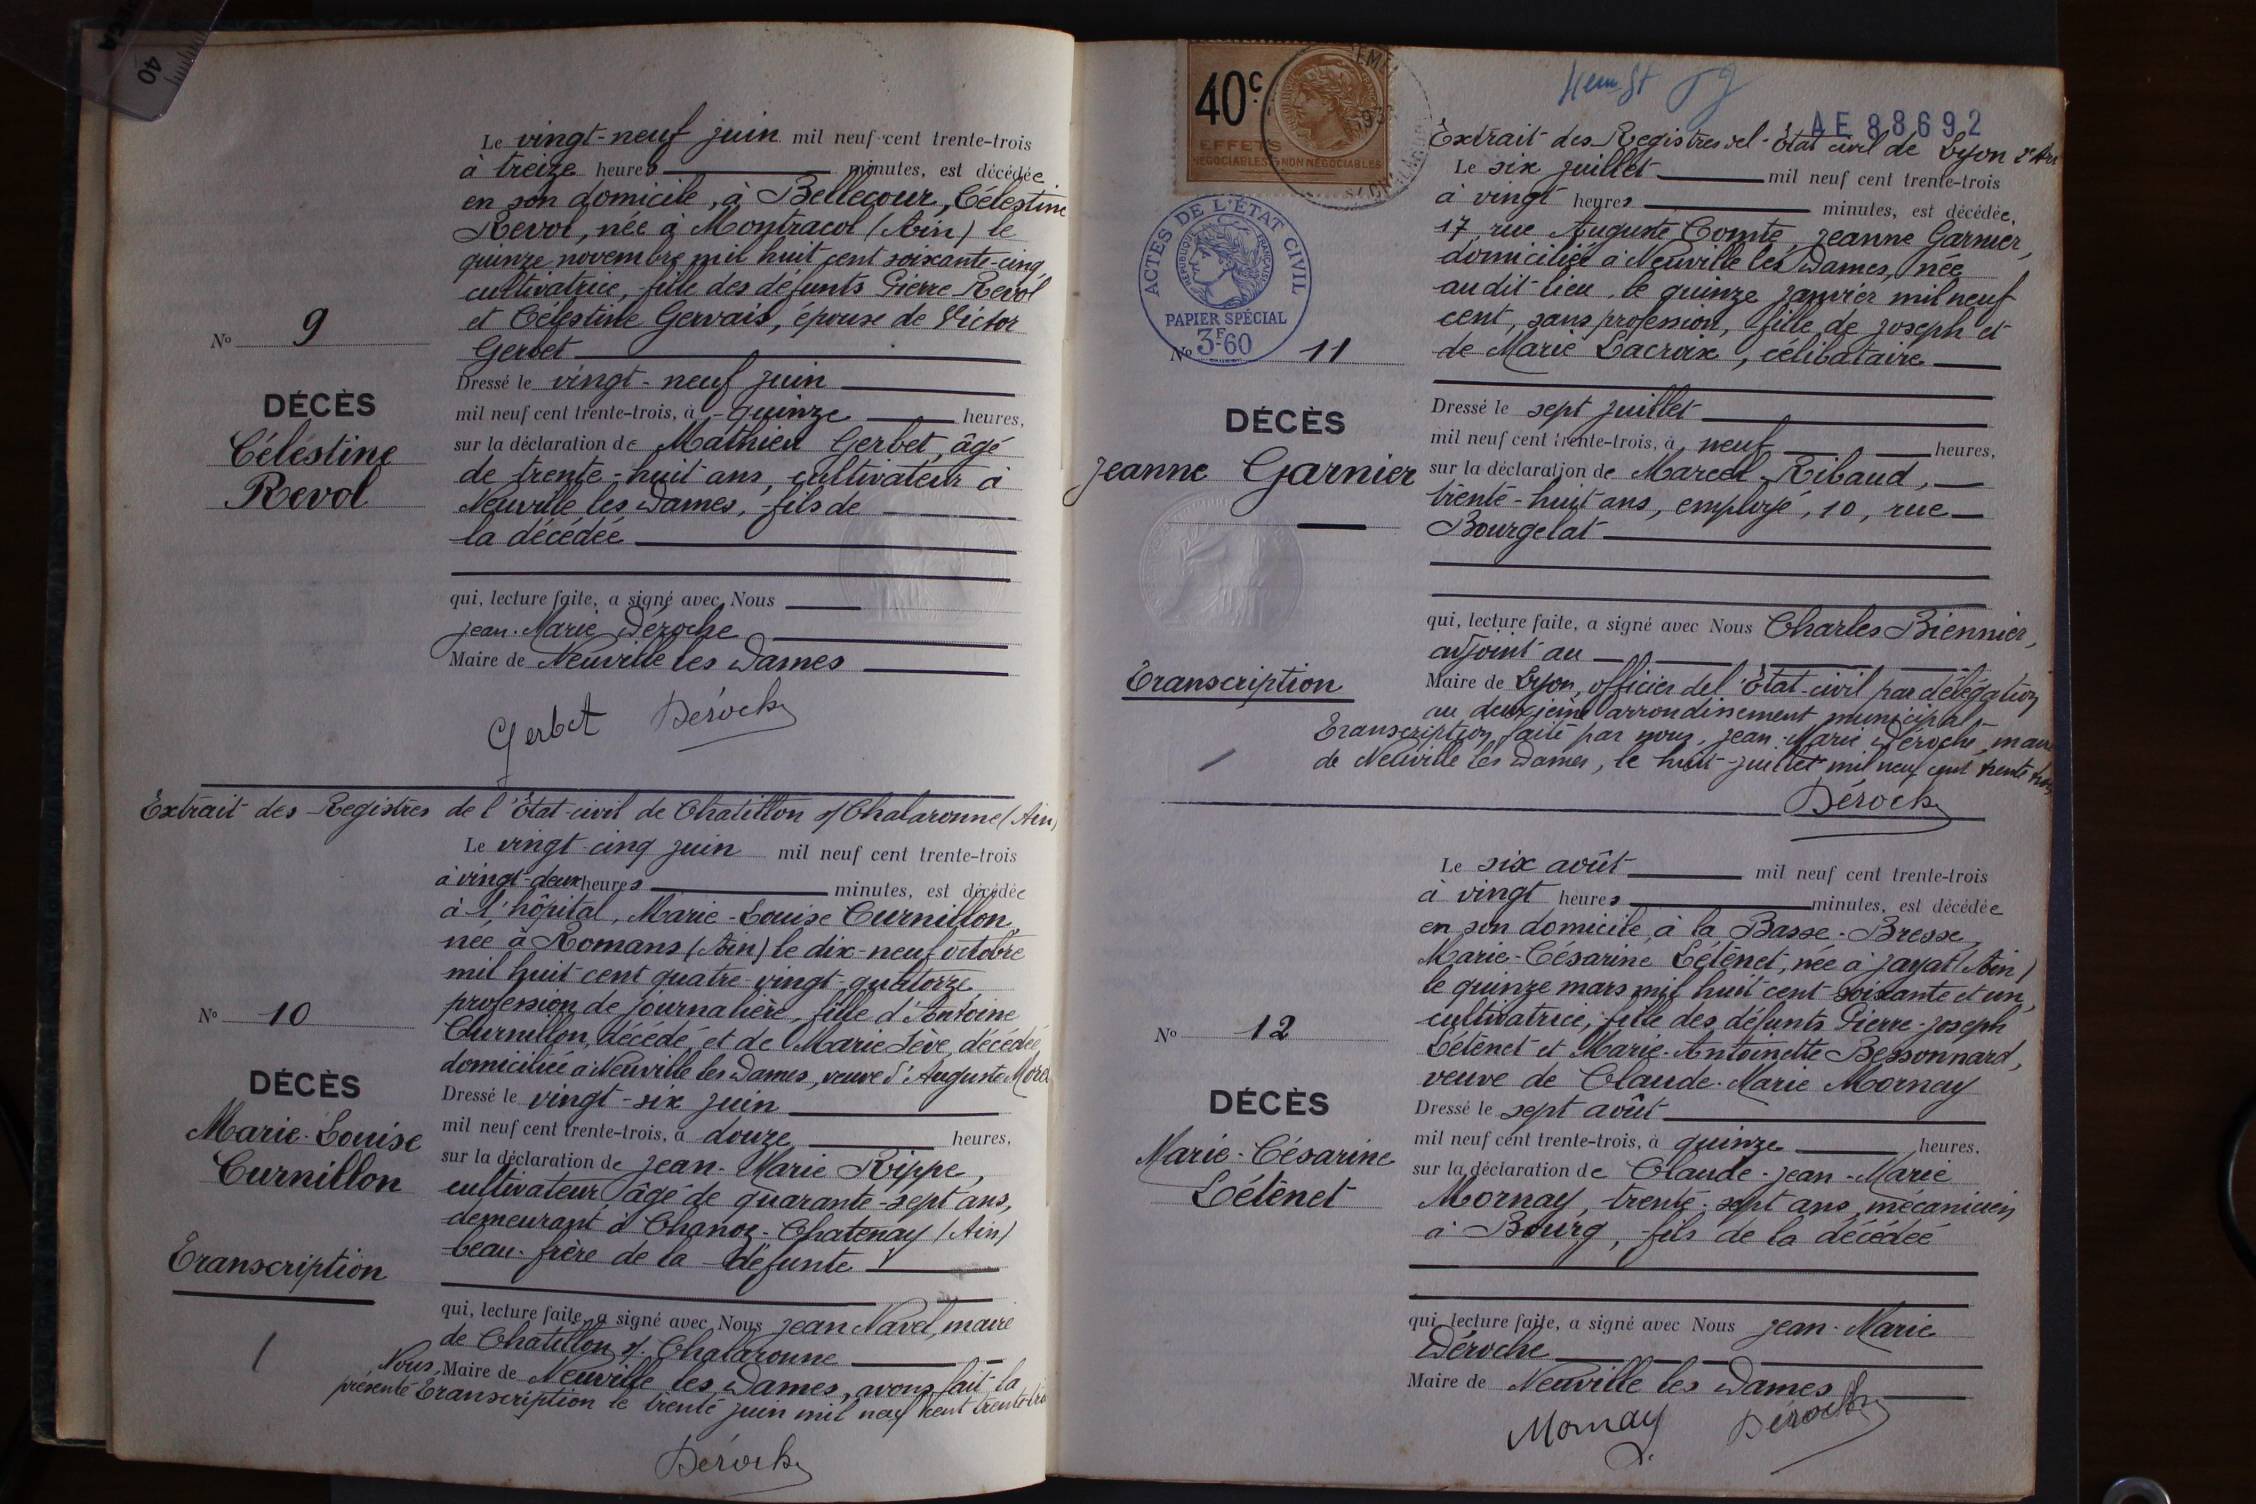 40
Le vingt-neuf juin mil neuf cent trente-trois
à treize heures minutes, est décédée
en son domicile, à Bellecour, Célestine
Revol, née à Montracol (Ain) le
quinze novembre mil huit cent soixante-cinq,
cultivatrice, fille des défunts Pierre Revol
et Célestine Gervais, épouse de Victor
Gerbet
No 9
DÉCÈS
Céléstine
Revol
Dressé le vingt-neuf juin
mil neuf cent trente-trois, à quinze heures,
sur la déclaration de Mathieu Gerbet, âgé
de trente-huit ans, cultivateur à
Neuville les Dames, fils de
la décédée
qui, lecture faite, a signé avec Nous
Jean-Marie Déroche
Maire de Neuville les Dames
Gerbet Déroche
Extrait des Registres de l'État-civil de Chatillon s/ Chalaronne (Ain)
Le vingt-cinq juin mil neuf cent trente-trois
à vingt-deux heures minutes, est décédée
à l'hôpital, Marie-Louise Curnillon,
née à Romans (Ain) le dix-neuf octobre
mil huit cent quatre-vingt-quatorze
profession de journalière, fille d'Antoine
Curnillon, décédé, et de Marie Sève, décédée
domiciliée à Neuville les Dames, veuve d'Auguste Morel
No 10
DÉCÈS
Marie-Louise
Curnillon
Transcription
Dressé le vingt-six juin
mil neuf cent trente-trois, à douze heures,
sur la déclaration de Jean-Marie Rippe,
cultivateur, âgé de quarante-sept ans,
demeurant à Chanoz-Chatenay (Ain)
beau-frère de la défunte
qui, lecture faite, a signé avec Nous Jean Navel, maire
de Chatillon s/ Chalaronne
Nous, Maire de Neuville les Dames, avons fait la
présente Transcription le trente juin mil neuf cent trente-trois
Déroche
40c
EFFETS
NÉGOCIABLES & NON NÉGOCIABLES
AE 88692
ACTES DE L'ÉTAT CIVIL
RÉPUBLIQUE FRANÇAISE
PAPIER SPÉCIAL
3F60
Extrait des Registres de l'État civil de Lyon 2e Arr
Le six juillet mil neuf cent trente-trois
à vingt heures minutes, est décédée,
17, rue Auguste Comte, Jeanne Garnier,
domiciliée à Neuville les Dames, née
audit-lieu, le quinze janvier mil neuf
cent, sans profession, fille de Joseph et
de Marie Lacroix, célibataire
No 11
DÉCÈS
Jeanne Garnier
Transcription
Dressé le sept juillet
mil neuf cent trente-trois, à neuf heures,
sur la déclaration de Marcel Ribaud,
trente-huit ans, employé, 10, rue
Bourgelat
qui, lecture faite, a signé avec Nous Charles Biennier,
adjoint au
Maire de Lyon, officier de l'État-civil par délégation
au deuxième arrondissement municipal
Transcription faite par nous, Jean-Marie Déroche, maire
de Neuville les Dames, le huit juillet mil neuf cent trente trois
Déroche
Le six août mil neuf cent trente-trois
à vingt heures minutes, est décédée
en son domicile, à la Basse-Bresse,
Marie-Césarine Létenet, née à Jayat (Ain)
le quinze mars mil huit cent soixante et un,
cultivatrice, fille des défunts Pierre-Joseph
Létenet et Marie-Antoinette Bessonnard,
veuve de Claude-Marie Mornay
No 12
DÉCÈS
Marie-Césarine
Létenet
Dressé le sept août
mil neuf cent trente-trois, à quinze heures,
sur la déclaration de Claude-Jean-Marie
Mornay, trente-sept ans, mécanicien
à Bourg, fils de la décédée
qui, lecture faite, a signé avec Nous Jean-Marie
Déroche
Maire de Neuville les Dames
Mornay Déroche